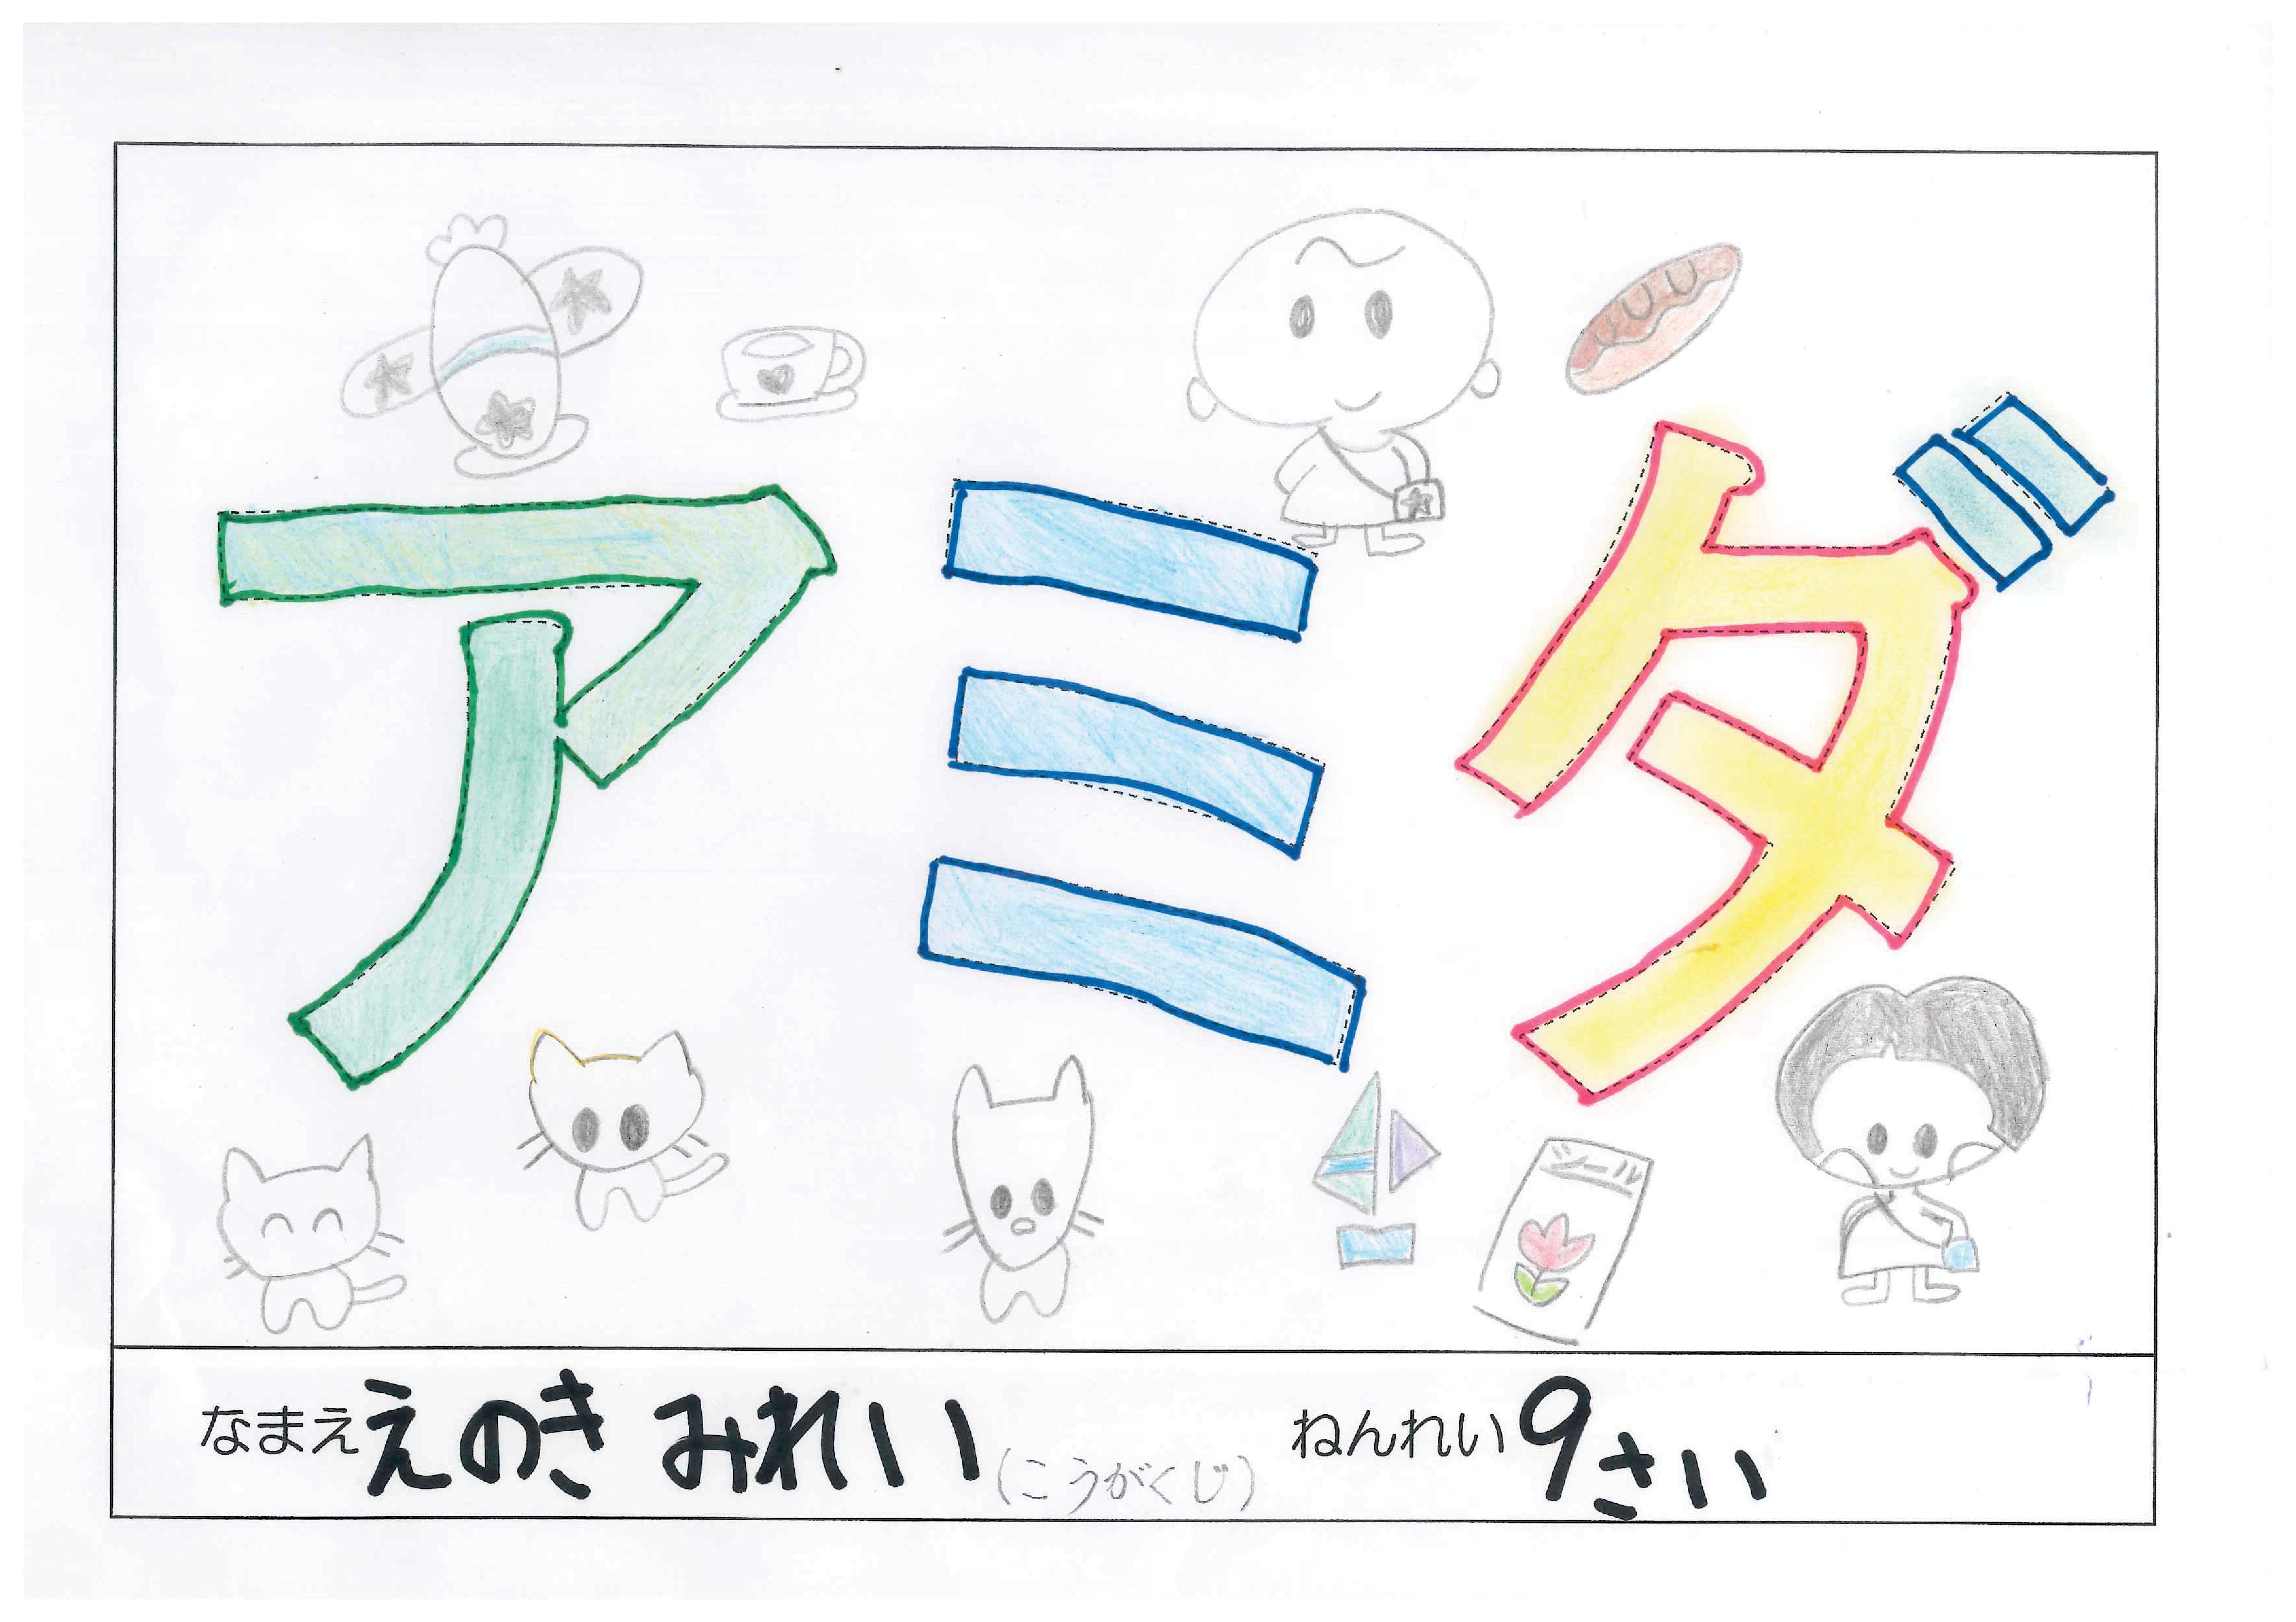 アミダ
シール
なまえ えのき みれい (こうがくじ) ねんれい 9さい